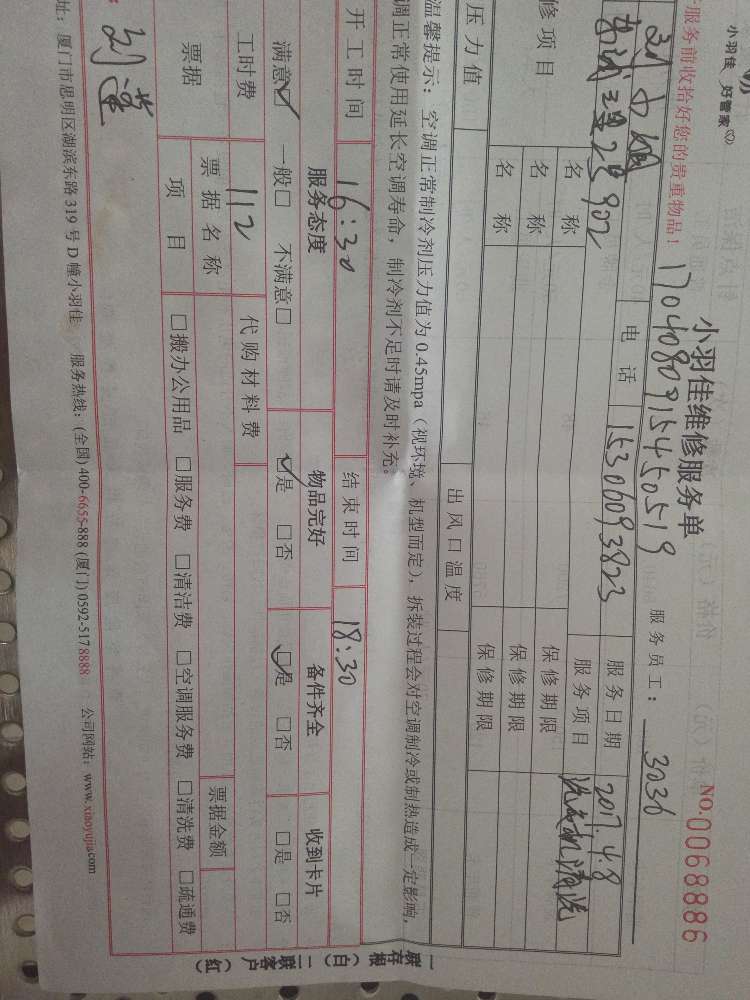 小羽佳 好管家
小羽佳维修服务单
NO.0068886
服务前收拾好您的贵重物品!
17040809154450519
服务员工: 3036
电话 15306093823 服务日期 2017.4.8
2号902
服务项目 洗衣机清洗
修项目
名称 保修期限
名称 保修期限
名称 保修期限
压力值 出风口温度
温馨提示: 空调正常制冷剂压力值为0.45mpa(视环境、机型而定), 拆装过程会对空调制冷或制热造成一定影响,
调正常使用延长空调寿命, 制冷剂不足时请及时补充。
开工时间 16:30 结束时间 18:30
服务态度 物品完好 备件齐全 收到卡片
满意☑ 一般□ 不满意□ ☑是 □否 ☑是 □否 □是 □否
工时费 112 代购材料费
票据 票据名称 票据金额
项目 □搬办公用品 □服务费 □清洁费 □空调服务费 □清洗费 □疏通费
址: 厦门市思明区湖滨东路319号D幢小羽佳 服务热线: (全国)400-6655-888 (厦门)0592-5178888 公司网站: www.xiaoyujia.com
一联存根(白)
二联客户(红)